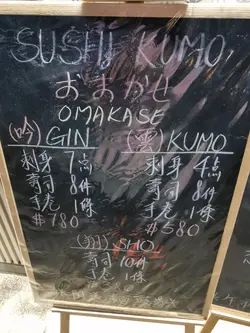 SUSHI KUMO
おまかせ
OMAKASE
(吟) GIN
刺身 7点
寿司 8件
手巻 1條
#780
(雲) KUMO
刺身 4点
寿司 8件
手巻 1條
#580
SHO
寿司 10件
手巻 1條